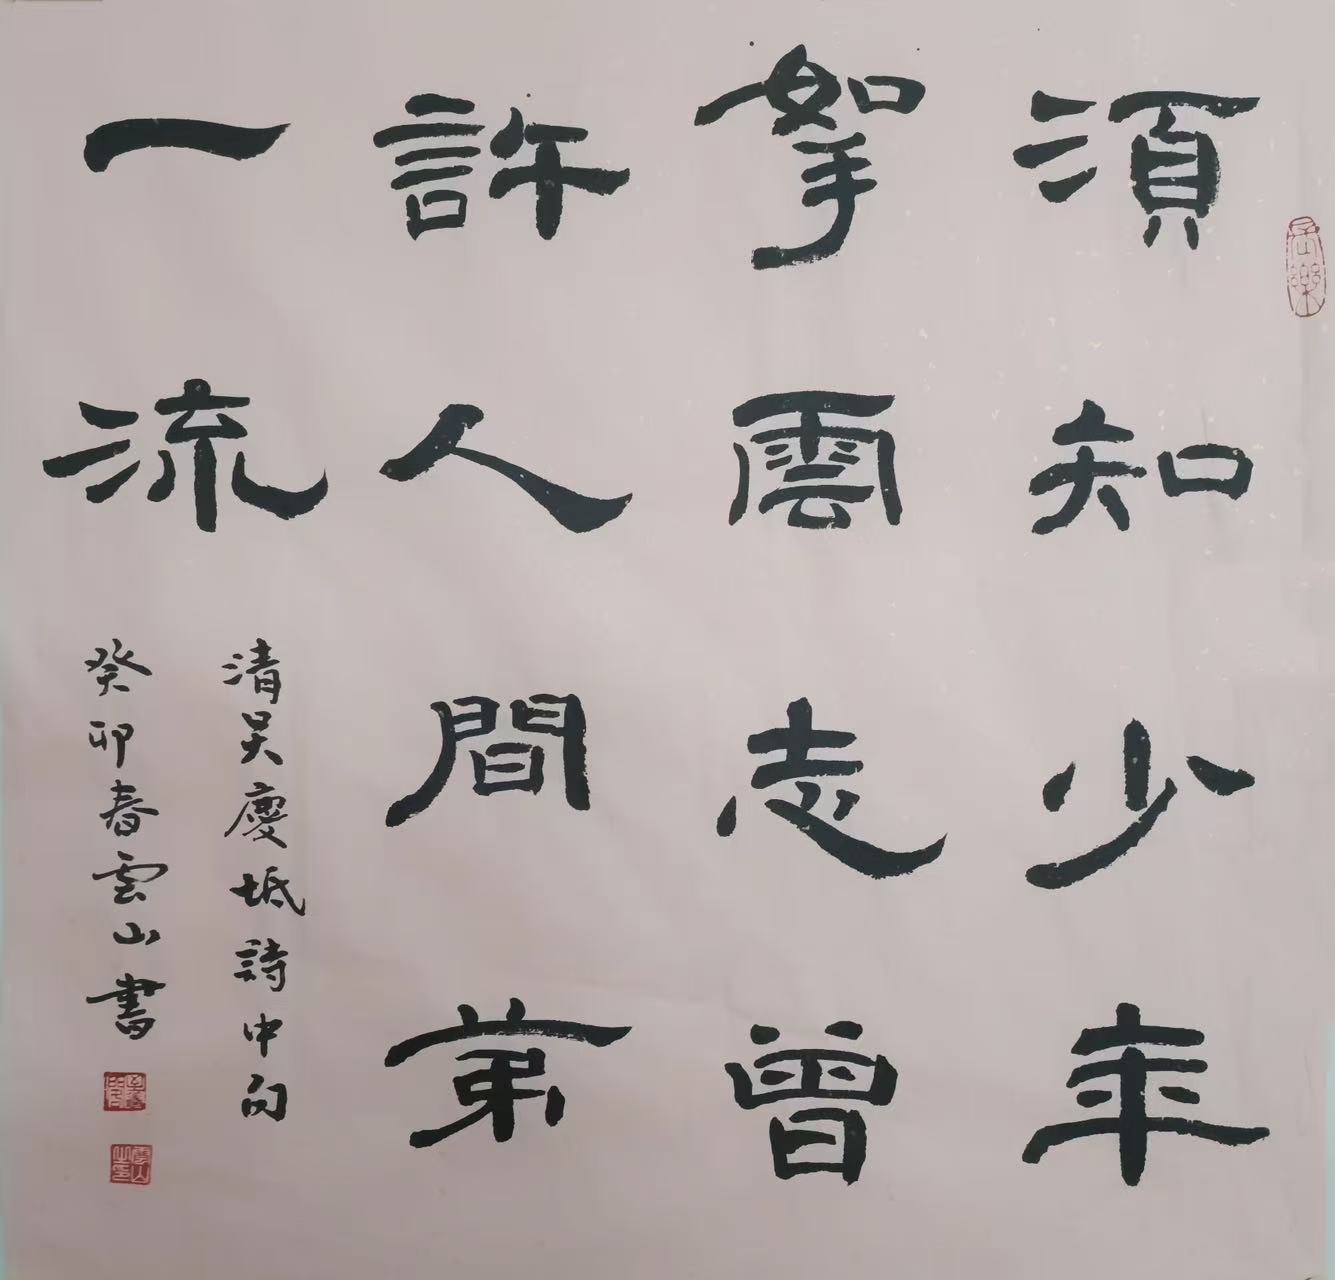 須知少年
挐雲志曾
許人間第
一流
清吴慶坻詩中句
癸卯春雲山書